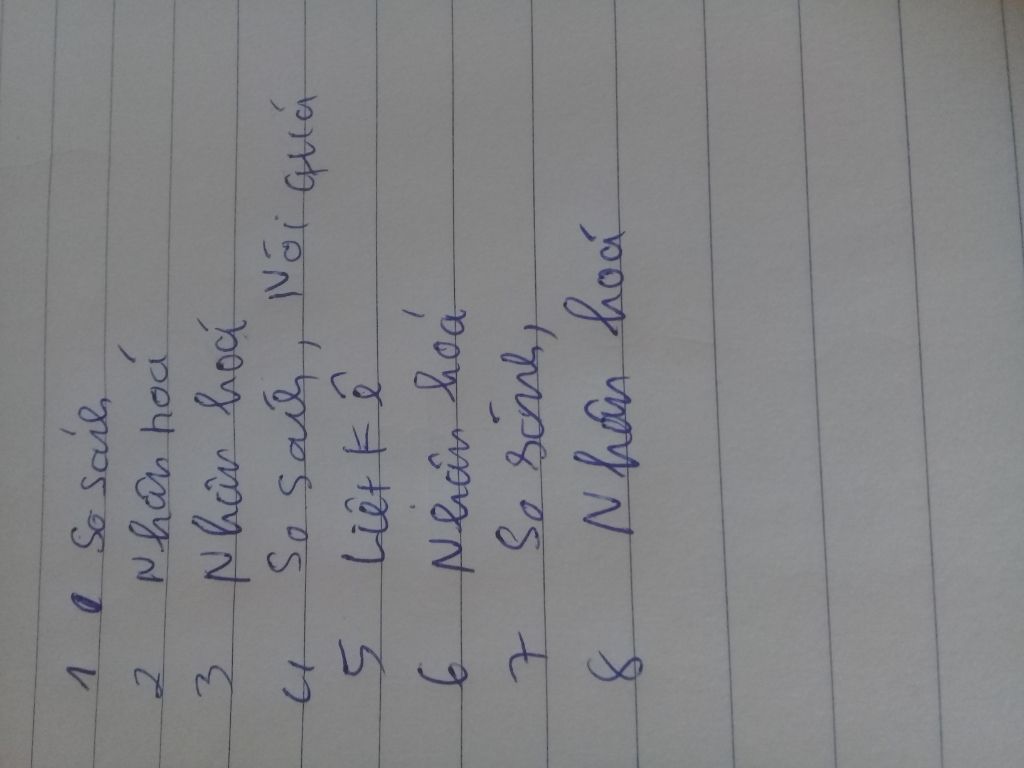 1 So sánh
2 Nhân hoá
3 Nhân hoá
4 So sánh, Nói quá
5 Liệt kê
6 Nhân hoá
7 So sánh,
8 Nhân hoá